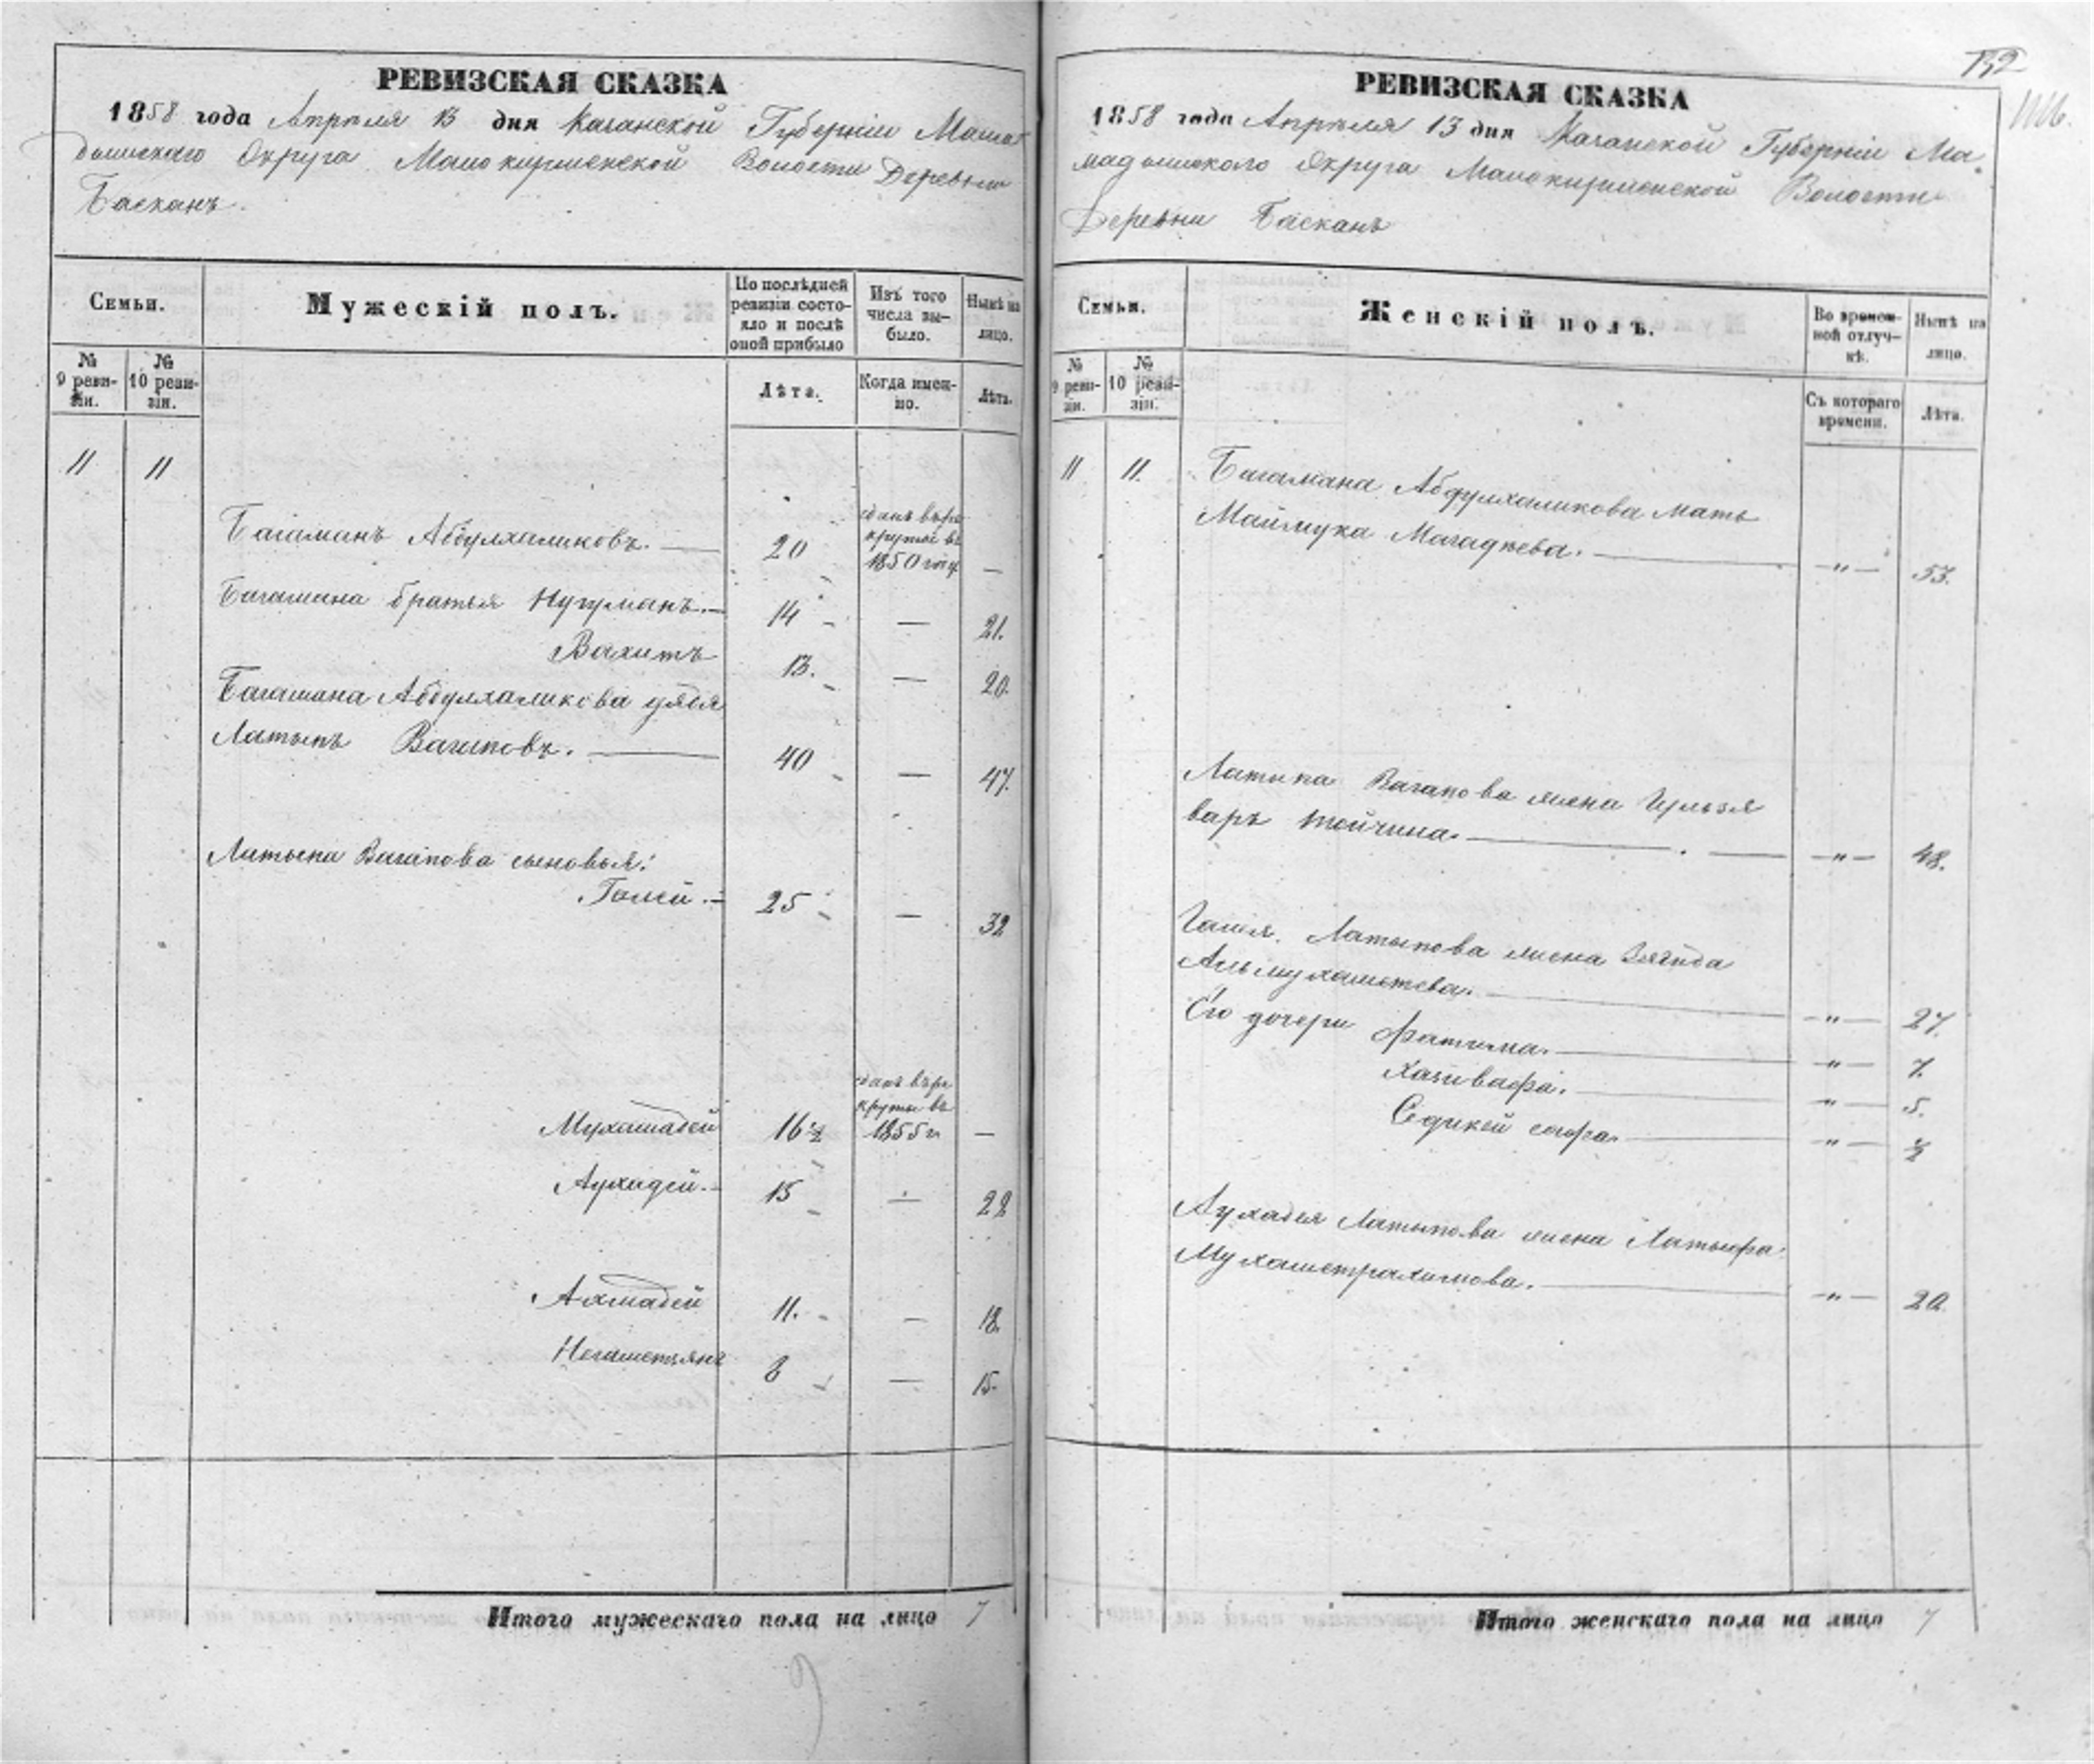 РЕВИЗСКАЯ СКАЗКА
1858 года Апреля 13 дня Казанской Губерніи Мама
дышскаго Округа Малокирменской Волости Деревни
Басканъ.
Семьи.
Мужескій полъ.
По послѣдней ревизіи состояло и послѣ оной прибыло
Изъ того числа выбыло.
Нынѣ на лицо.
№ 9 ревизіи.
№ 10 ревизіи.
Лѣта.
Когда именно.
Лѣта.
11 11
Багаманъ Абдулхаликовъ. — 20 сданъ въ рекруты въ 1850 году —
Багамана братья Нугуманъ. — 14 — 21.
Вахитъ 13. — 20.
Багамана Абдулхаликова дядя
Латыпъ Вагаповъ. — 40 — 47.
Латыпа Вагапова сыновья:
Галей. — 25 — 32
Мухамадей 16½ сданъ въ рекруты въ 1855 г. —
Аухадей. — 15 — 22
Ахмадей 11. — 18.
Негаметзянъ 8 — 15.
Итого мужескаго пола на лицо 7
132
РЕВИЗСКАЯ СКАЗКА
1858 года Апреля 13 дня Казанской Губерніи Ма
мадышскаго Округа Малокирменской Волости
Деревни Басканъ
Семьи.
Женскій полъ.
Во временной отлучкѣ.
Нынѣ на лицо.
№ 9 ревизіи.
№ 10 ревизіи.
Съ котораго времени.
Лѣта.
11 11.
Багамана Абдулхаликова мать
Маймука Магадѣева. — „ — 53.
Латыпа Вагапова жена Гульзя
варъ Тойчина. — „ — 48.
Галея Латыпова жена Зягида
Альмухаметева. — „ — 27.
Его дочери Фатима. — „ — 7.
Хазивафа. — „ — 5.
Седикей сафа. — „ — ½
Аухадея Латыпова жена Латыфа
Мухаметрахимова. — „ — 20.
Итого женскаго пола на лицо 7